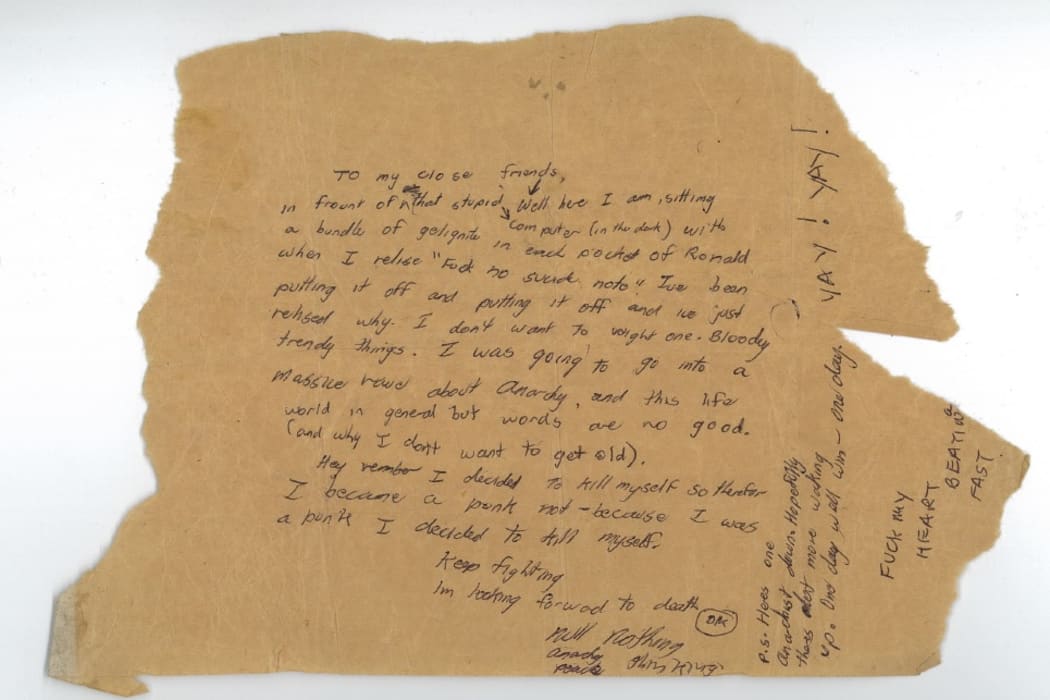 To my close friends,
in frount of that stupid Well here I am, sitting
computer (in the dark) with
a bundle of gelignite in each pocket of Ronald
when I relise "Fuck no suicide note" Ive been
putting it off and putting it off and ive just
relised why. I don't want to wright one. Bloody
trendy things. I was going to go into a
massive rave about Anarchy, and this life
world in general but words are no good.
(and why I dont want to get old).
Hey rember I decided to kill myself so therfor
I became a punk not - because I was
a punk I decided to kill myself.
Keep fighting
Im looking forwad to death
null nothing
anarchy
peace thinking
P.S. Heres one
Anarchist down. Hopefully
theres alot more waking
up. One day we'll win - one day.
YAY! YAY!
FUCK MY
HEART
BEATING
FAST